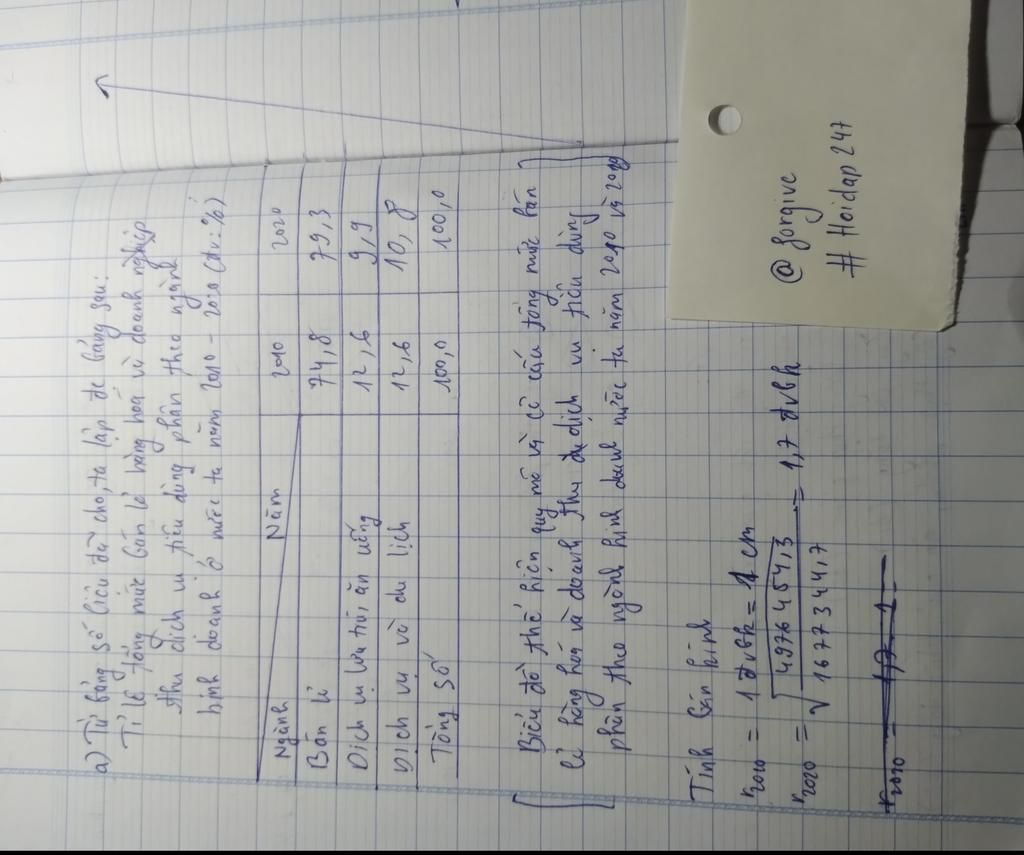 a) Từ bảng số liệu đã cho, ta lập đc bảng sau:
Tỉ lệ tổng mức bán lẻ hàng hoá và doanh nghiệp
thu dịch vụ tiêu dùng phân theo ngành
kinh doanh ở nước ta năm 2010 - 2020 (đv: %)
Năm 2010 2020
Ngành
Bán lẻ 74,8 79,3
Dịch vụ lưu trú, ăn uống 12,6 9,9
Dịch vụ và du lịch 12,6 10,8
Tổng số 100,0 100,0
Biểu đồ thể hiện quy mô và cơ cấu tổng mức bán
lẻ hàng hoá và doanh thu dịch vụ tiêu dùng
phân theo ngành kinh doanh nước ta năm 2010 và
Tính bán kính
r2010 = 1 đvbk = 1 cm
r2020 = √4976454,3 / √1677344,7 = 1,7 đvbk
r2020 =
@ gorgive
# Hoidap 247